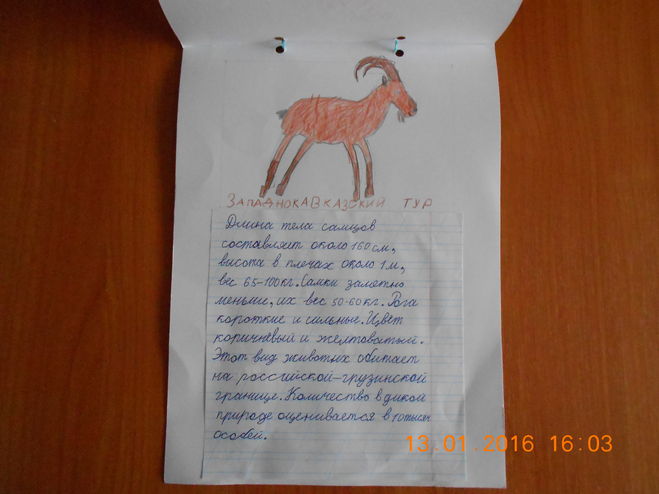 ЗАПАДНОКАВКАЗСКИЙ ТУР
Длина тела самцов
составляет около 160 см,
висота в плечах около 1 м,
вес 65-100 кг. Самки заметно
меньши, их вес 50-60 кг. Рога
короткие и сильные. Цвет
коричневый и желтоватый.
Этот вид животных обитает
на российской-грузинской
границе. Количество в дикой
природе оценивается в 10 тысяч
особей.
13.01.2016 16:03